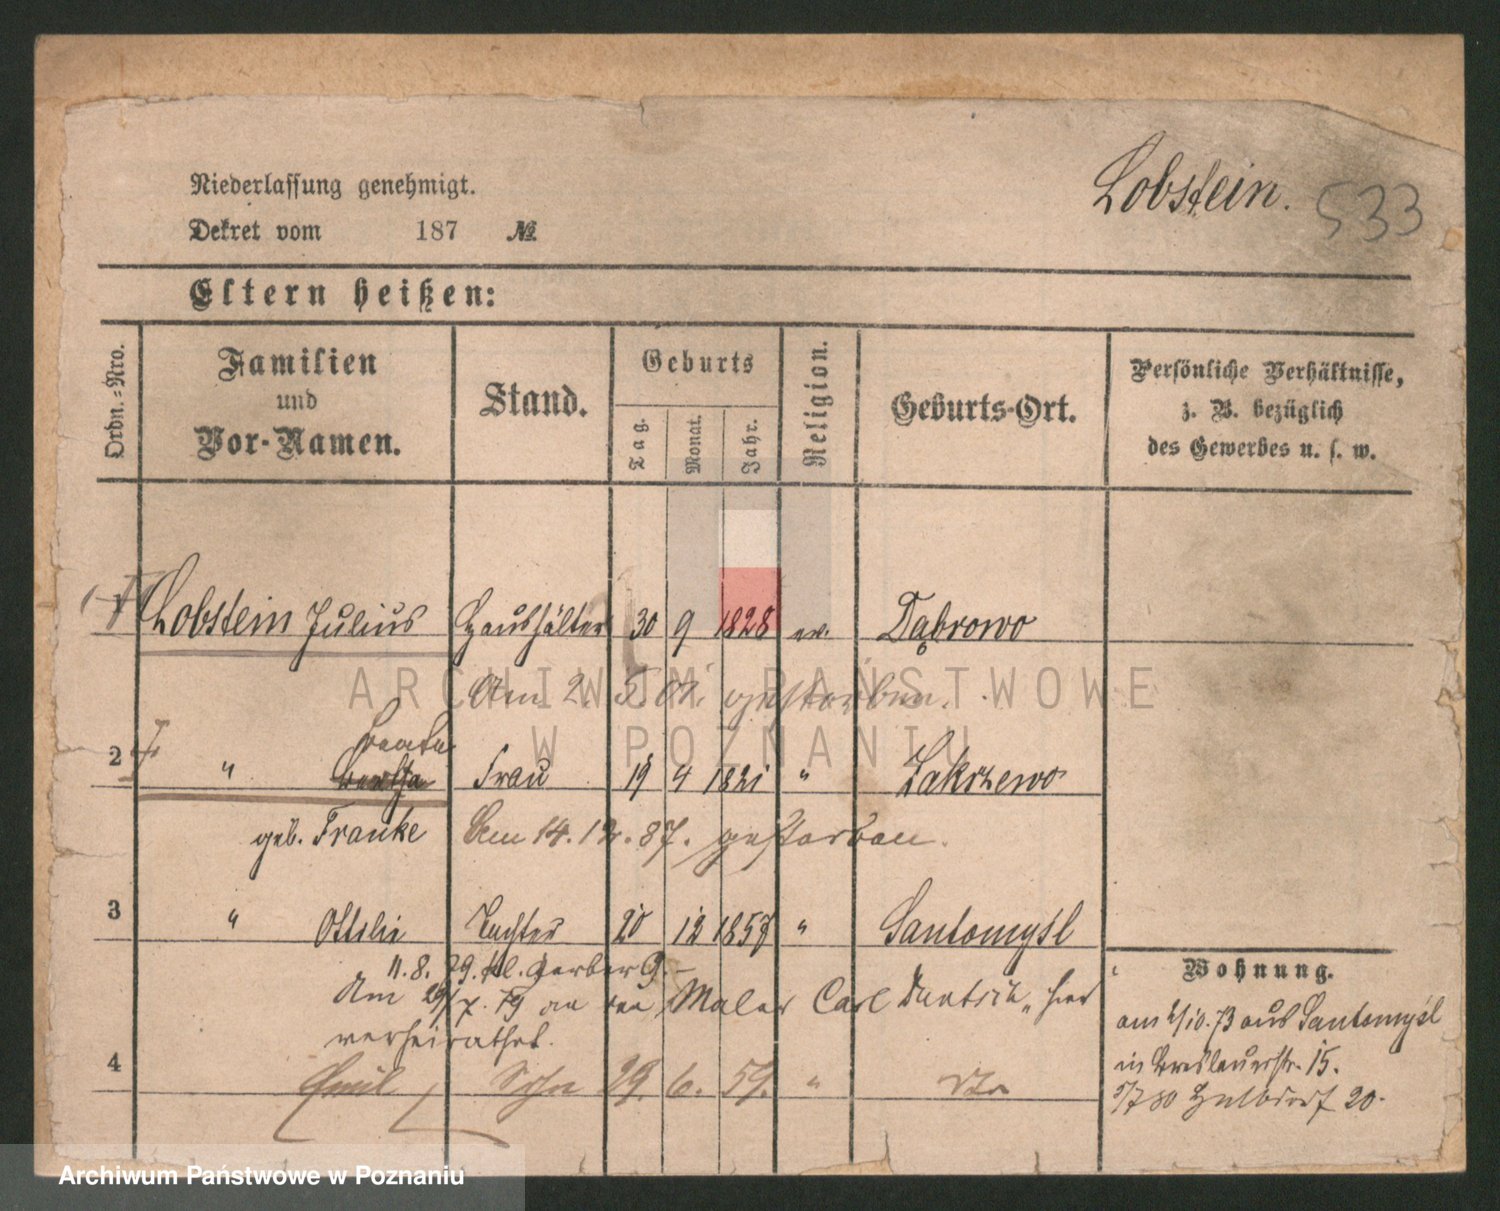 Lobstein. 533
Niederlassung genehmigt.
Dekret vom 187 №
Eltern heißen:
Ordn.-Nro.
Familien und Vor-Namen.
Stand.
Geburts
Tag. Monat. Jahr.
Religion.
Geburts-Ort.
Persönliche Verhältnisse, z. B. bezüglich des Gewerbes u. s. w.
1 Lobstein Julius Haushälter 30 9 1828 ev. Dąbrowo
Am 2. 5. 01. gestorben.
Beate
2 " Bertha Frau 19 4 1821 " Zakrzewo
geb. Franke Am 14. 12. 87. gestorben.
3 " Ottilie Tochter 20 12 1857 " Santomysl
11. 8. 79. kl. Gerber 9.
Am 29/7. 79 an den Maler Carl hier
verheirathet.
4 Emil Sohn 29. 6. 59. " dto
Wohnung.
am 2/10. 73 aus Santomysl
in Breslauerstr. 15.
5/7 80 Halbdorf 20.
ARCHIWUM PAŃSTWOWE
W POZNANIU
Archiwum Państwowe w Poznaniu